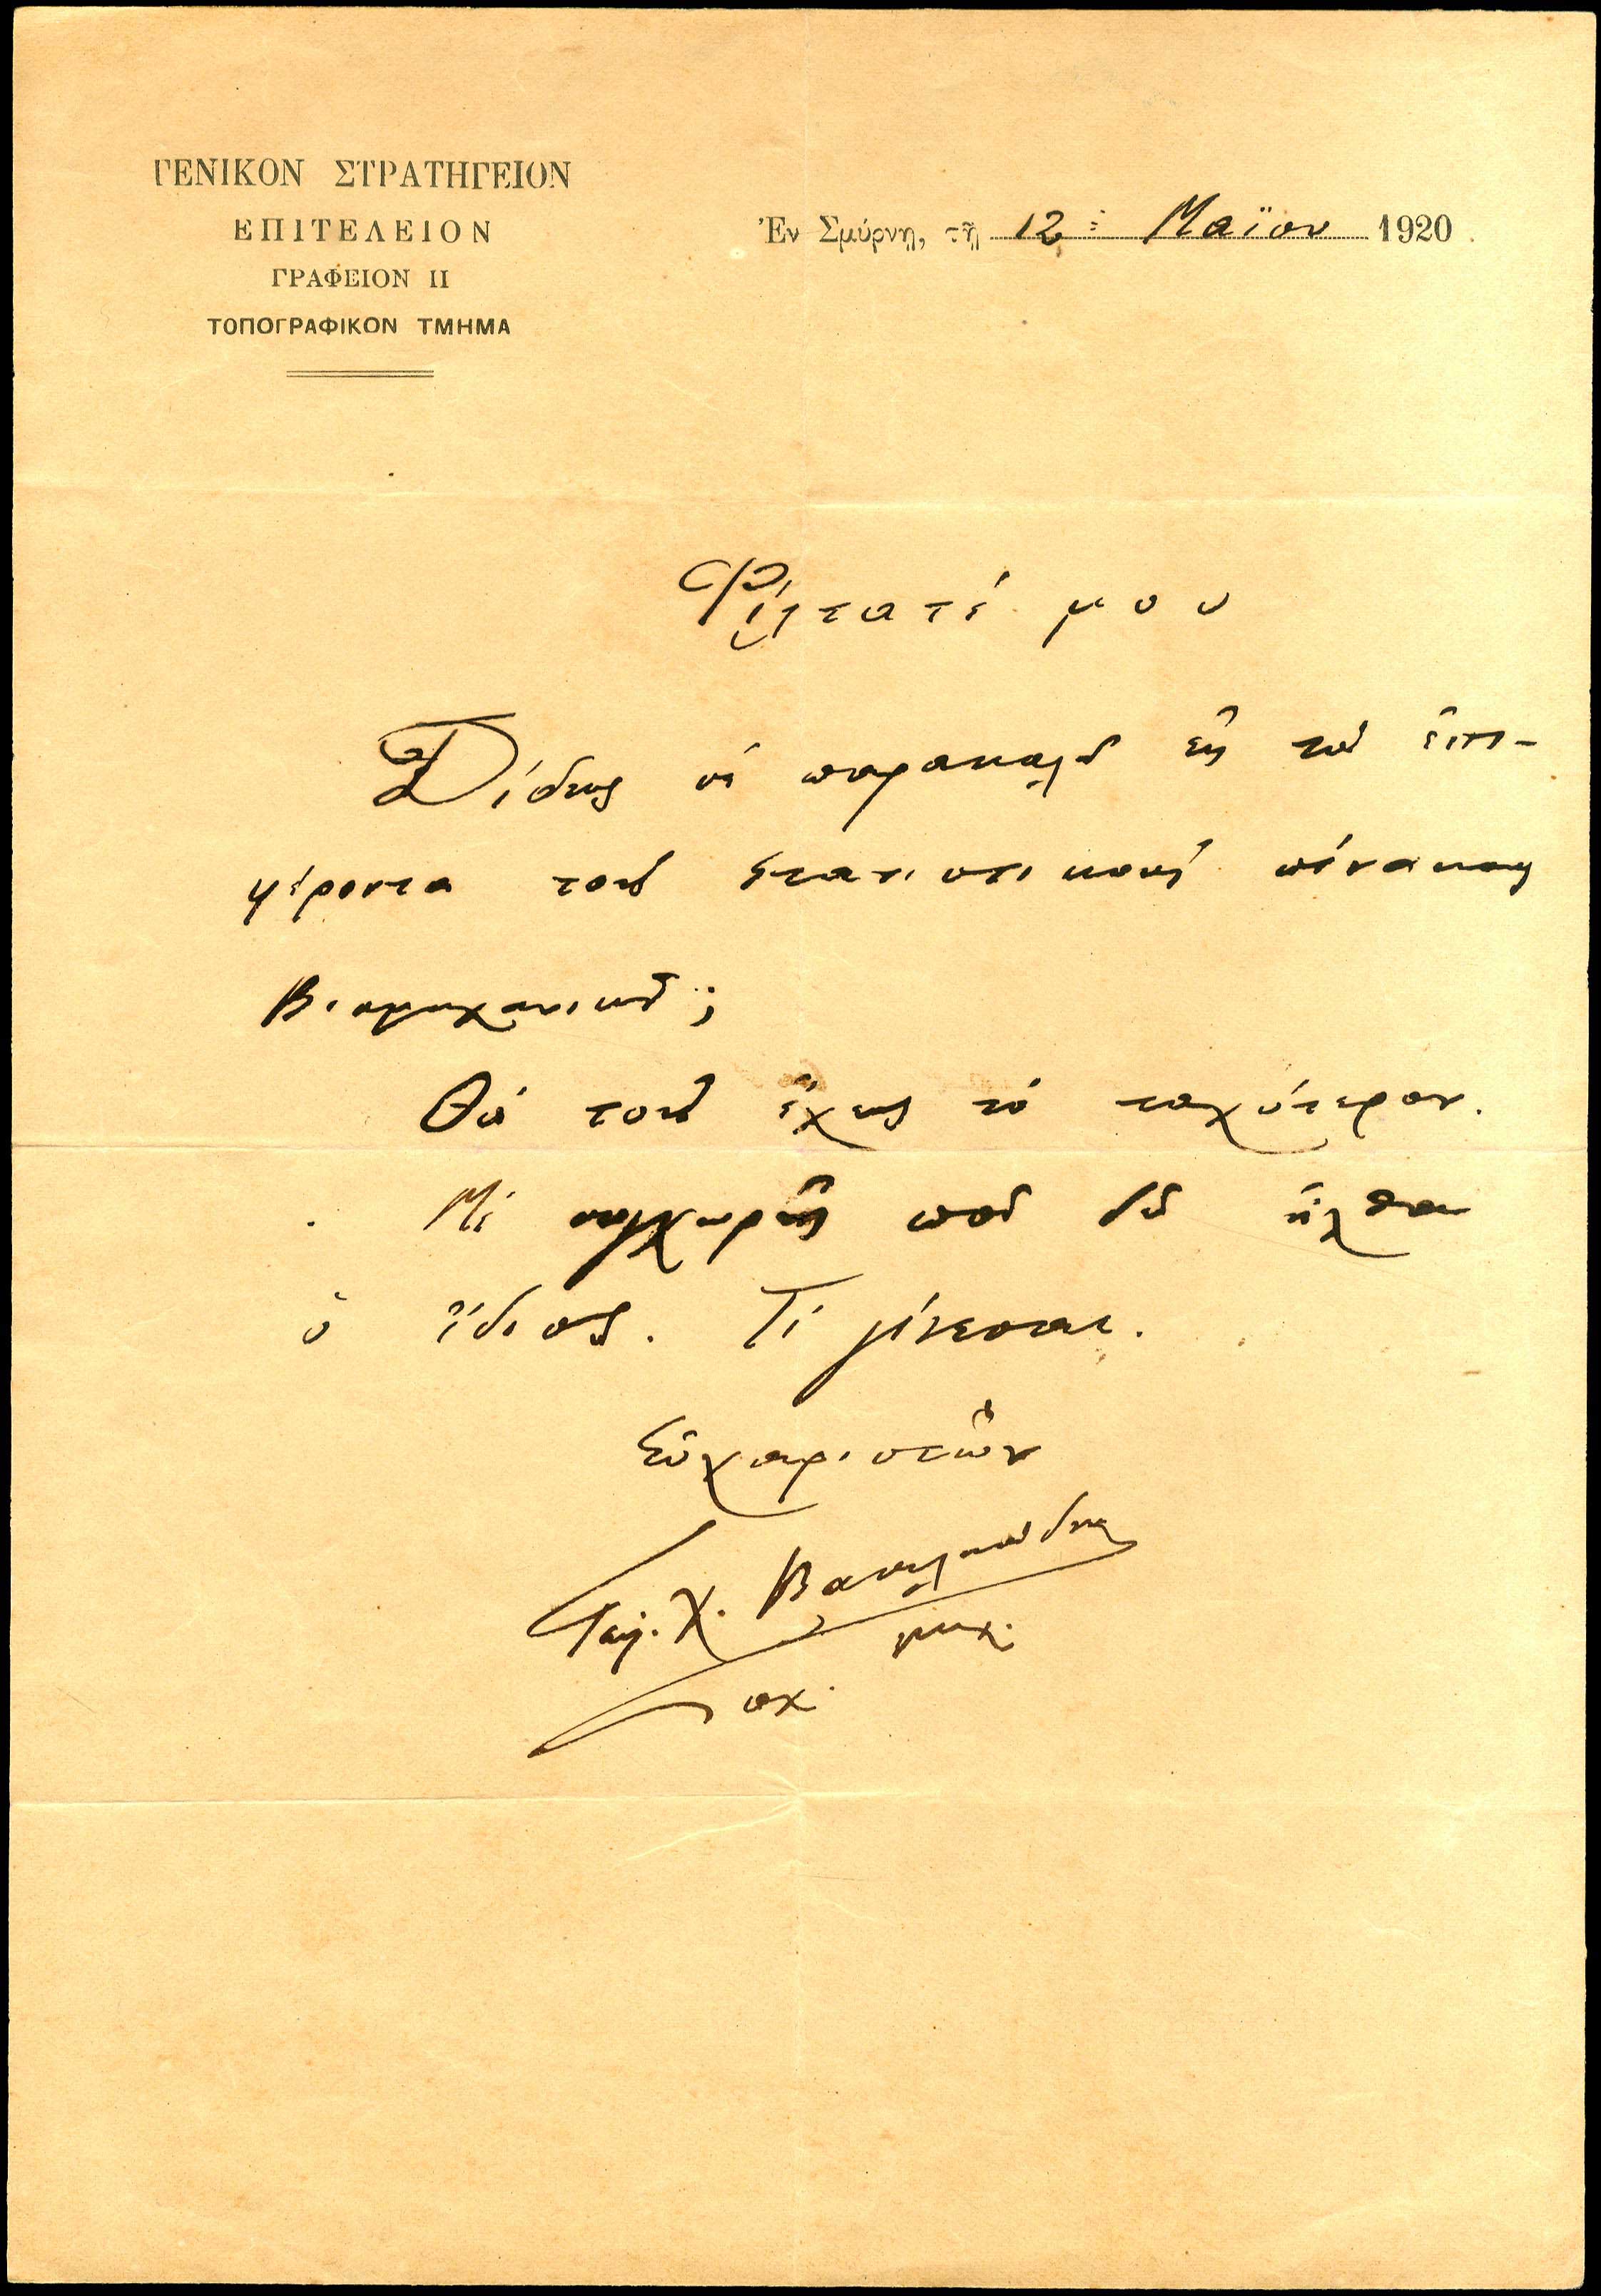 ΓΕΝΙΚΟΝ ΣΤΡΑΤΗΓΕΙΟΝ
ΕΠΙΤΕΛΕΙΟΝ
ΓΡΑΦΕΙΟΝ ΙΙ
ΤΟΠΟΓΡΑΦΙΚΟΝ ΤΜΗΜΑ
Ἐν Σμύρνῃ, τῇ 12 Μαΐου 1920
Φίλτατέ μου
Δίδεις σὲ παρακαλῶ εἰς τὸν ἐπι-
φέροντα τοὺς στατιστικοὺς πίνακας
Βιομηχανικῶν;
Θὰ τοὺς ἔχῃς τὸ ταχύτερον.
Μὲ συγχωρεῖς ποὺ δὲν ἦλθα
ὁ ἴδιος. Τί γίνεσαι.
Εὐχαριστῶν
Γεώρ. Χ.
μηχ.